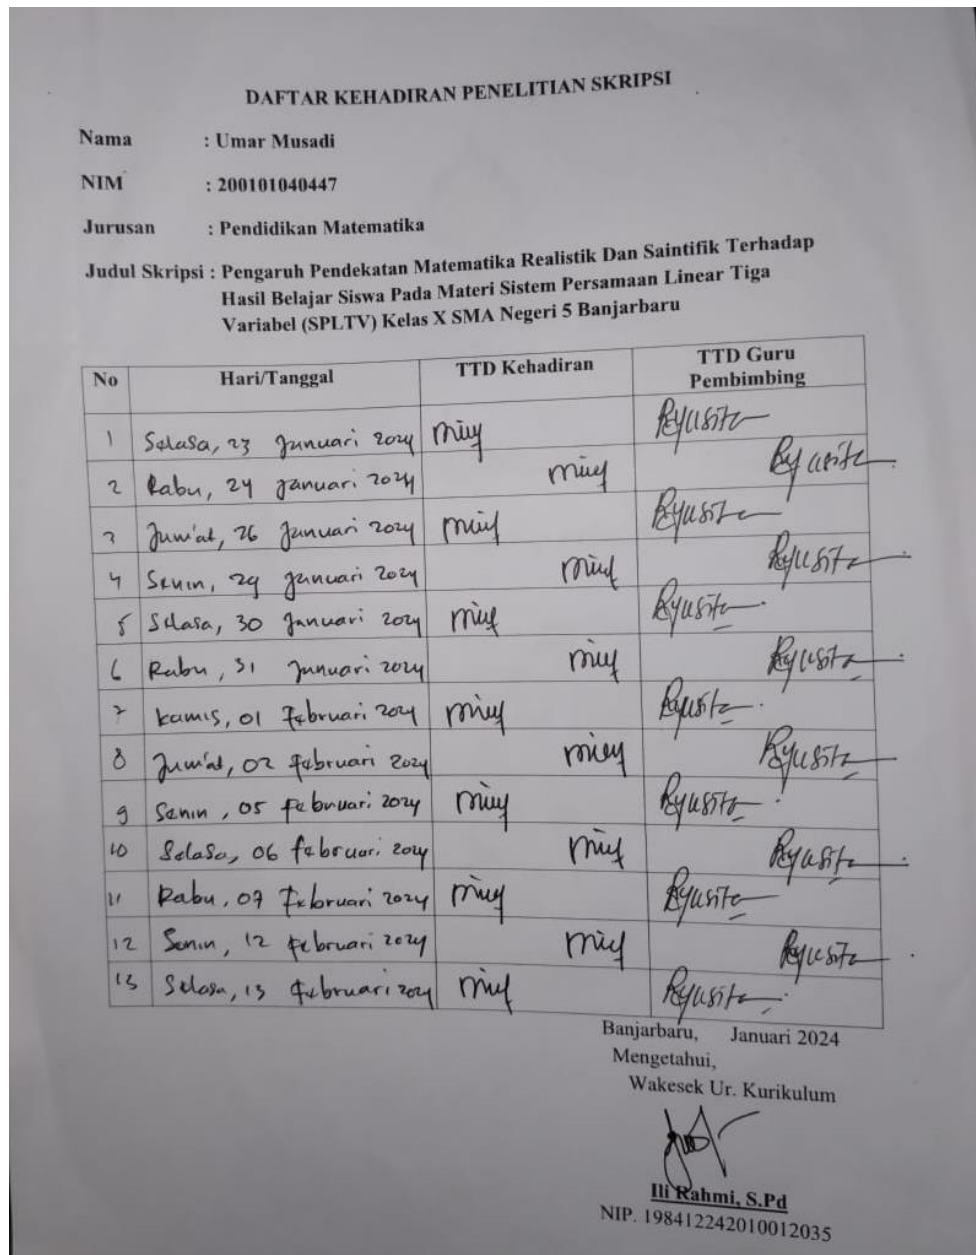 DAFTAR KEHADIRAN PENELITIAN SKRIPSI
Nama : Umar Musadi
NIM : 200101040447
Jurusan : Pendidikan Matematika
Judul Skripsi : Pengaruh Pendekatan Matematika Realistik Dan Saintifik Terhadap
Hasil Belajar Siswa Pada Materi Sistem Persamaan Linear Tiga
Variabel (SPLTV) Kelas X SMA Negeri 5 Banjarbaru
No Hari/Tanggal TTD Kehadiran TTD Guru
Pembimbing
1 Selasa, 23 Januari 2024
2 Rabu, 24 Januari 2024
3 Jum'at, 26 Januari 2024
4 Senin, 29 Januari 2024
5 Selasa, 30 Januari 2024
6 Rabu, 31 Januari 2024
7 Kamis, 01 Februari 2024
8 Jum'at, 02 Februari 2024
9 Senin, 05 Februari 2024
10 Selasa, 06 Februari 2024
11 Rabu, 07 Februari 2024
12 Senin, 12 Februari 2024
13 Selasa, 13 Februari 2024
Banjarbaru, Januari 2024
Mengetahui,
Wakesek Ur. Kurikulum
Ili Rahmi, S.Pd
NIP. 198412242010012035